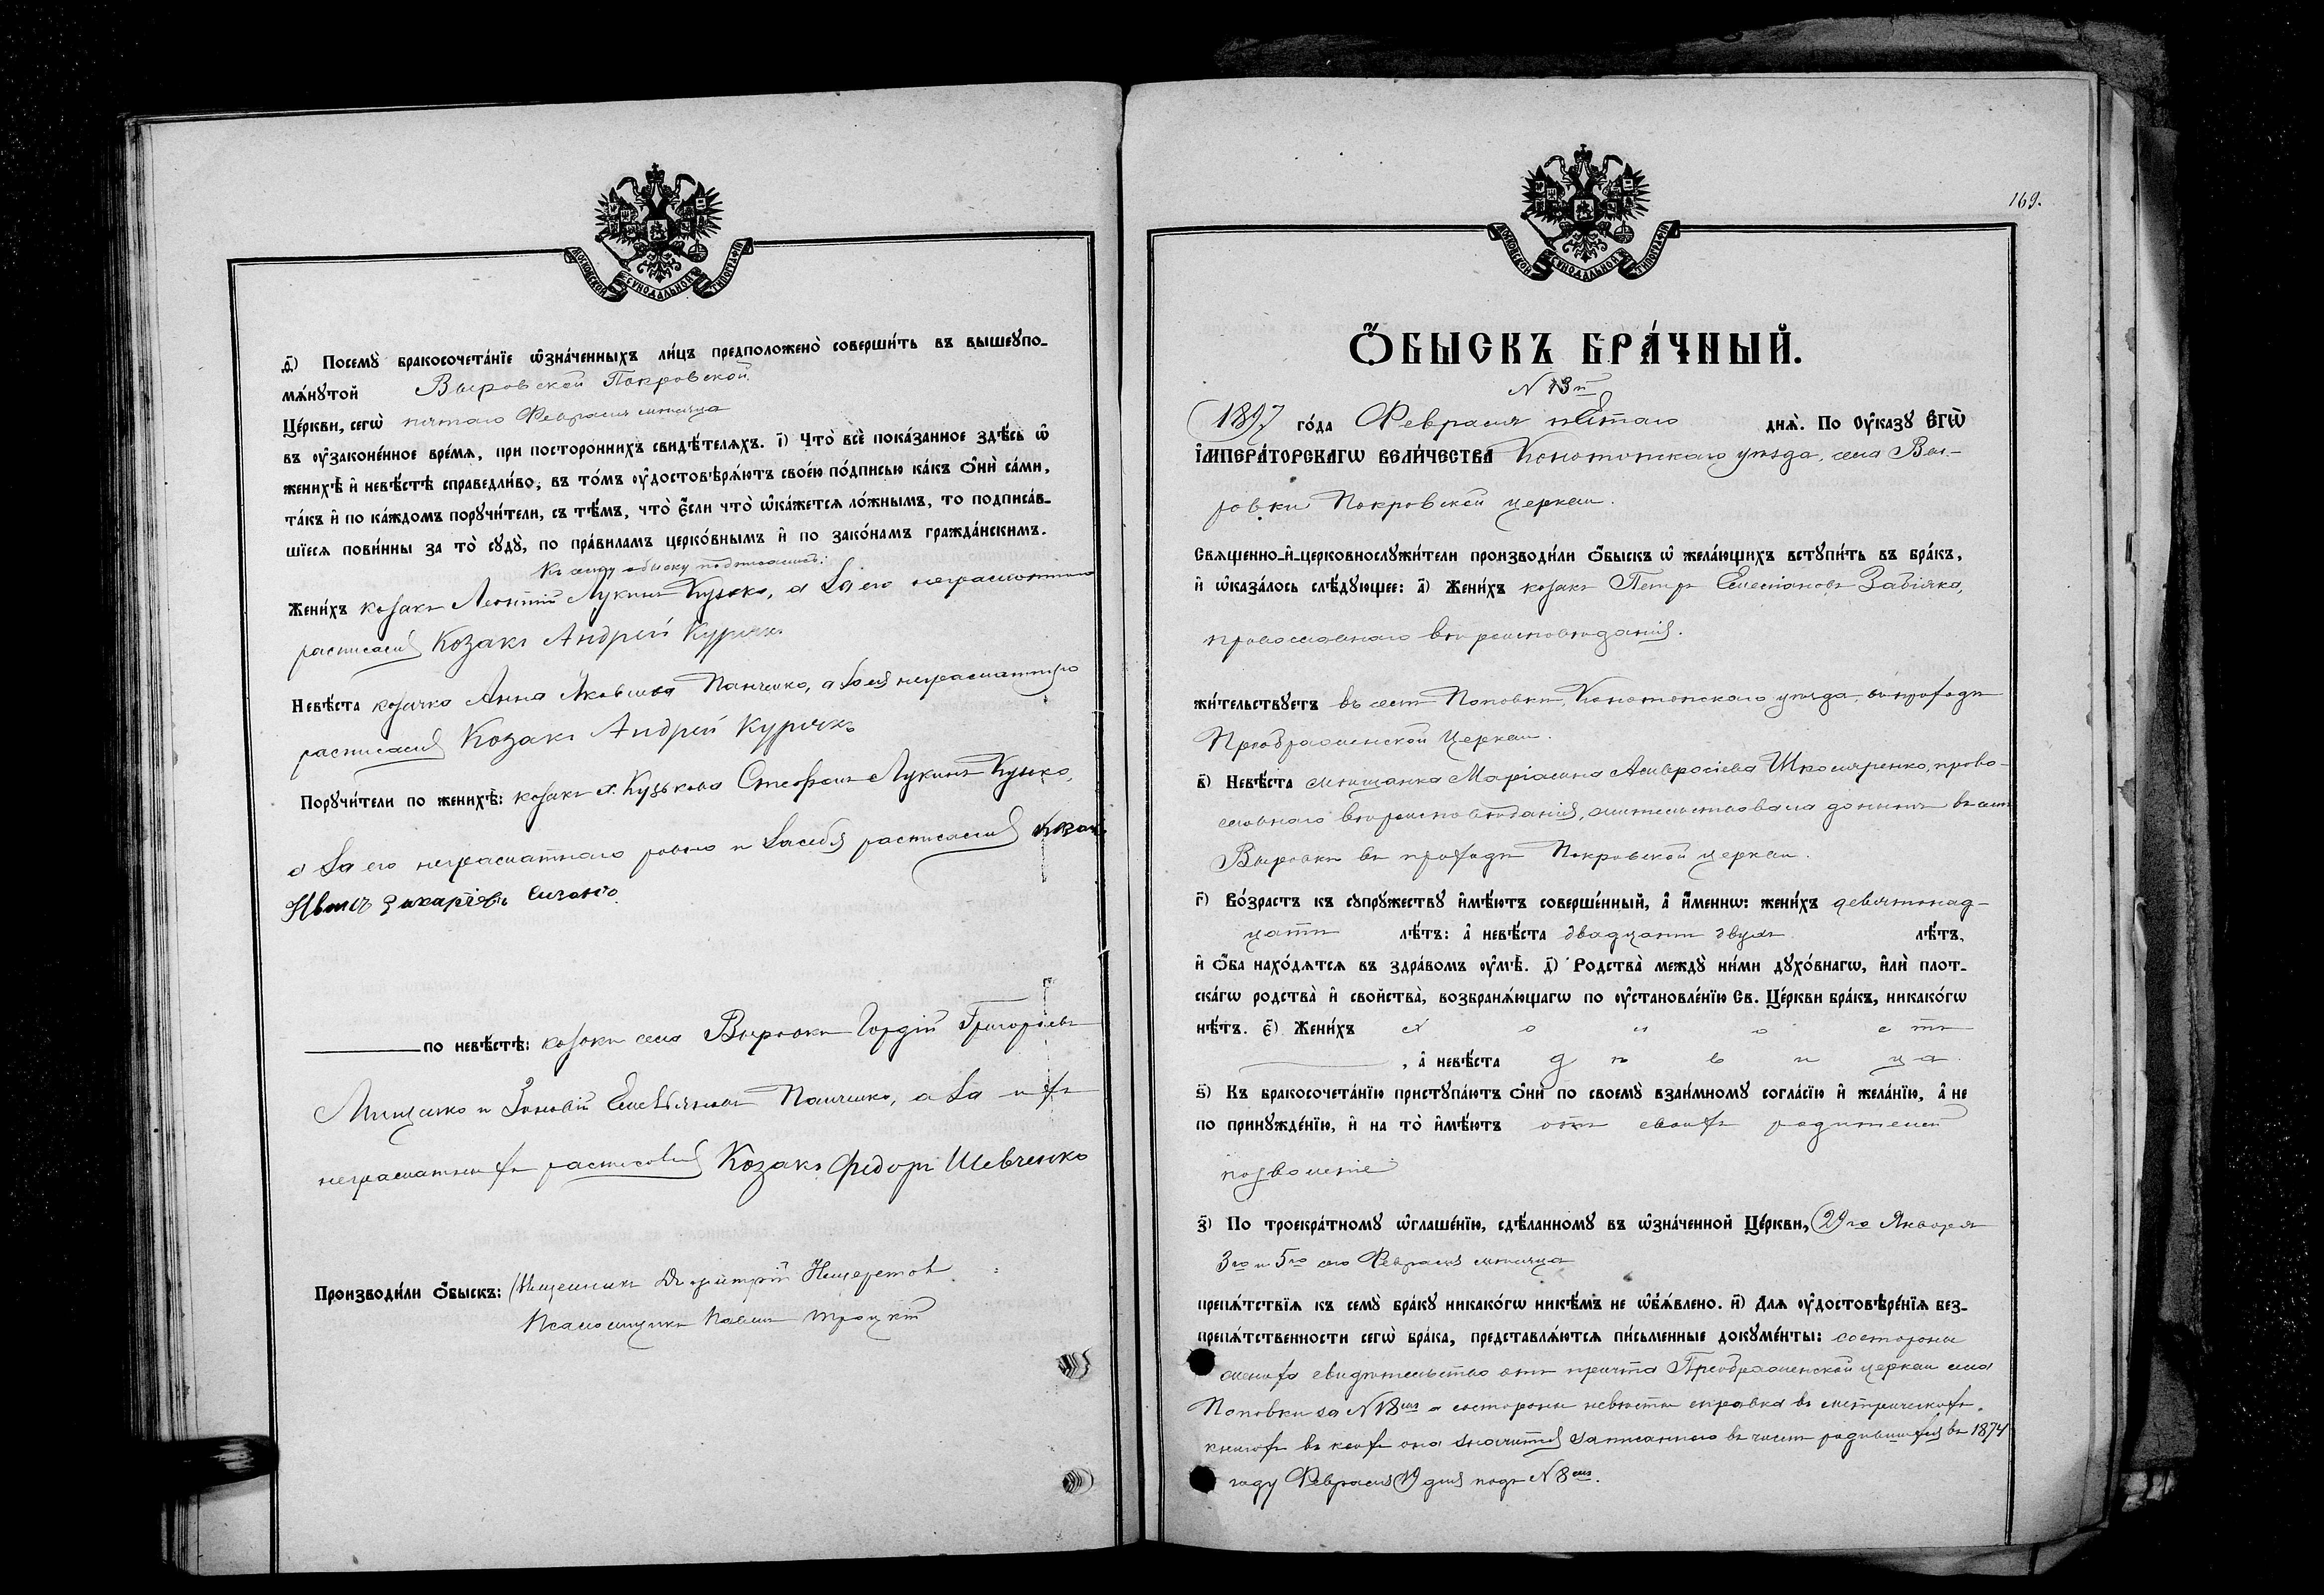 МОСКОВСКОЙ СѴНОДАЛЬНОЙ ТИПОГРАФІИ
д҃) Посемꙋ̀ бракосочета́нїе ѡ҆зна́ченныхъ ли́цъ предположено̀ соверши́ть въ вышеꙋпо-
мѧ́нꙋтой Выровской Покровской
Це́ркви, сегѡ̀ пятаго Февраля мѣсяца
въ ᲂу҆законе́нное вре́мѧ, при посторо́ннихъ свидѣ́телѧхъ. і҃) Что̀ всѐ пока́занное здѣ́сь ѡ҆
женихѣ̀ и҆ невѣ́стѣ справедли́во, въ то́мъ ᲂу҆достовѣрѧ́ютъ свое́ю по́дписью ка́къ ѻ҆нѝ са́ми,
та́къ и҆ по ка́ждомъ порꙋчи́тели, съ тѣ́мъ, что̀ є҆́сли что̀ ѡ҆ка́жется ло́жнымъ, то подписа́в-
шїесѧ пови́нны за то̀ сꙋдꙋ̀, по пра́виламъ церко́внымъ и҆ по зако́намъ гражда́нскимъ.
Къ сему обыску подписались:
Жени́хъ козакъ Леонтій Лукинъ Кузько, а за его неграмотнаго
расписался Козакъ Андрей Куричко
Невѣ́ста козачка Анна Яковлева Панченко, а за ея неграмотную
расписался Козакъ Андрей Куричко
Порꙋчи́тели по женихѣ̀: козакъ х. Кузькова Стефанъ Лукинъ Кузько,
а за его неграмотнаго ровно и за себя расписался козакъ
Иванъ Захаріевъ
по невѣ́стѣ: козаки села Выровки Гордій Григорьевъ
и Зиновій Емельяновъ Панченко, а за ихъ
неграмотныхъ расписался Козакъ Федоръ Шевченко
Производи́ли ѻ҆́быскъ: Священникъ Димитрій Нещеретов
Псаломщикъ Павелъ Троцкій
169.
МОСКОВСКОЙ СѴНОДАЛЬНОЙ ТИПОГРАФІИ
Ѻ҆́БЫСКЪ БРА́ЧНЫЙ.
N 13й
1897 го́да Февраля пятаго днѧ̀. По ᲂу҆ка́зꙋ Є҆гѡ̀
І҆мпера́торскагѡ Вели́чества Конотопскаго уѣзда, села Вы-
ровки Покровской церкви.
Свѧщенно-и҆-церковнослꙋжи́тели производи́ли ѻ҆́быскъ ѡ҆ жела́ющихъ встꙋпи́ть въ бра́къ,
и҆ ѡ҆каза́лось слѣ́дꙋющее: а҃) Жени́хъ козакъ Петръ Емеліановъ Забіяка,
православнаго вѣроисповѣданія.
жи́тельствꙋетъ въ селѣ Поповкѣ, Конотопскаго уѣзда, въ приходѣ
Преображенской церкви.
в҃) Невѣ́ста мѣщанка Маріамна Амвросіева Школяренко, право-
славнаго вѣроисповѣданія, жительствовала донынѣ въ селѣ
Выровки въ приходѣ Покровской церкви.
г҃) Во́зрастъ къ сꙋпрꙋ́жествꙋ и҆мѣ́ютъ соверше́нный, а҆ и҆́менно: жени́хъ девятнад-
цати лѣ́тъ: а҆ невѣ́ста двадцати двухъ лѣ́тъ,
и҆ ѻ҆́ба нахо́дѧтсѧ въ здра́вомъ ᲂу҆мѣ̀. д҃) Родства̀ междꙋ̀ ни́ми дꙋхо́внагѡ, и҆лѝ плот-
ска́гѡ родства̀ и҆ свойства̀, возбранѧ́ющагѡ по ᲂу҆становле́нїю Св. Це́ркви бра́къ, никако́гѡ
нѣ́тъ. є҃) Жени́хъ х о л о с тъ
, а҆ невѣ́ста д ѣ в и ца
ѕ҃) Къ бракосочета́нїю пристꙋпа́ютъ ѻ҆нѝ по своемꙋ̀ взаи́мномꙋ согла́сїю и҆ жела́нїю, а҆ не
по принꙋжде́нїю, и҆ на то̀ и҆мѣ́ютъ отъ своихъ родителей
позволеніе
з҃) По троекра́тномꙋ ѡ҆глаше́нїю, сдѣ́ланномꙋ въ ѡ҆зна́ченной Це́ркви, 29го Января
3го и 5го сего Февраля мѣсяца
препѧ́тствїѧ къ семꙋ̀ бра́кꙋ никако́гѡ никѣ́мъ не ѡ҆б̾ѧ́влено. и҃) Для ᲂу҆достовѣре́нїѧ без-
препѧ́тственности сегѡ̀ бра́ка, представлѧ́ютсѧ пи́сьменные докꙋме́нты: состороны
жениха свидѣтельство отъ причта Преображенской церкви села
Поповки за N 18мъ а состороны невѣсты справка въ метрическихъ
книгахъ въ коихъ она значится записанною въ числѣ родившихся въ 1874
году Февраля 19 дня подъ N 8мъ.